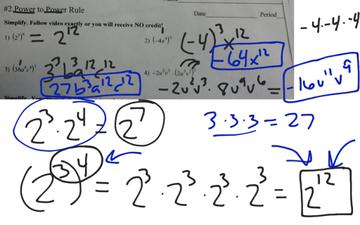 #2 Power to Power Rule Date Period
Simplify. Follow video exactly or you will receive NO credit!
1) (2³)⁴ = 2¹² 2) (-4x⁴)³ (-4)³x¹² -4·-4·-4
-64x¹²
3³b³a¹²c¹²
27b³a¹²c¹² -2u²v³·8v⁹v⁶ = -16u¹¹v⁹
Simplify.
2³·2⁴ = 2⁷ 3·3·3 = 27
(2³)⁴ = 2³·2³·2³·2³ = 2¹²